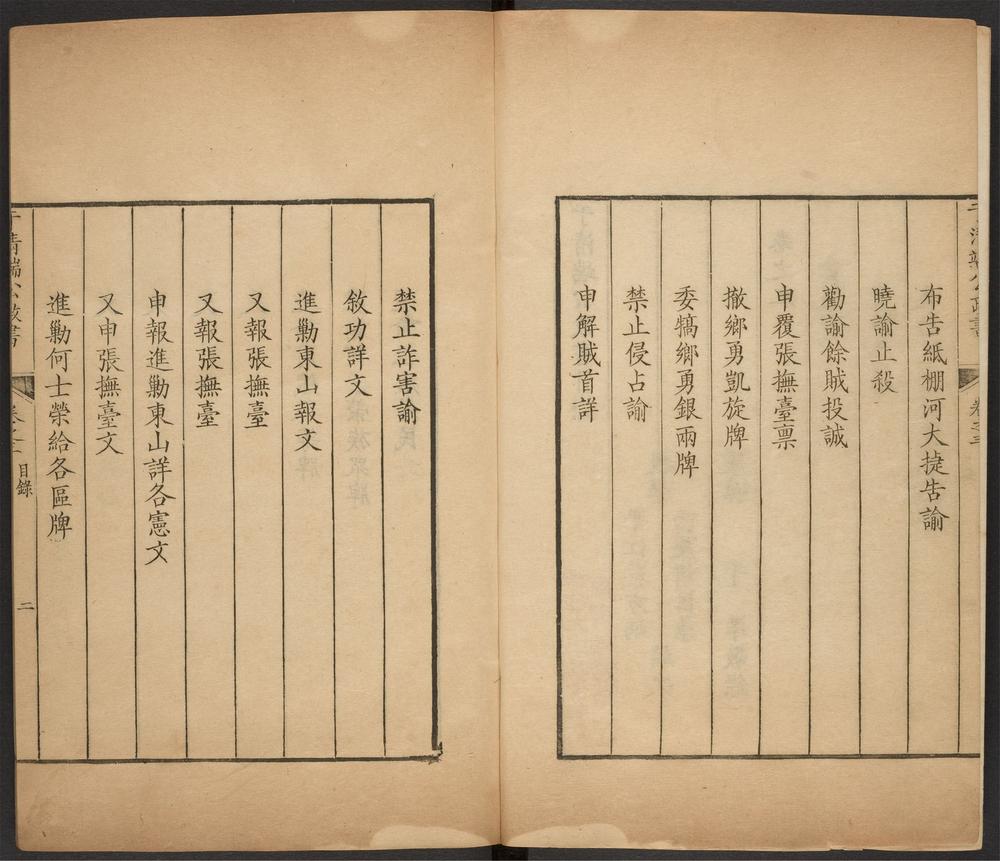 于清端公政書 卷之二
布告紙棚河大捷告諭
曉諭止殺
勸諭餘賊投誠
申覆張撫臺禀
撤鄉勇凱旋牌
委犒鄉勇銀兩牌
禁止侵占諭
申解賊首詳
禁止詐害諭
敘功詳文
進勦東山報文
又報張撫臺
又報張撫臺
申報進勦東山詳各憲文
又申張撫臺文
進勦何士榮給各區牌
于清端公政書 卷之二 目錄 二